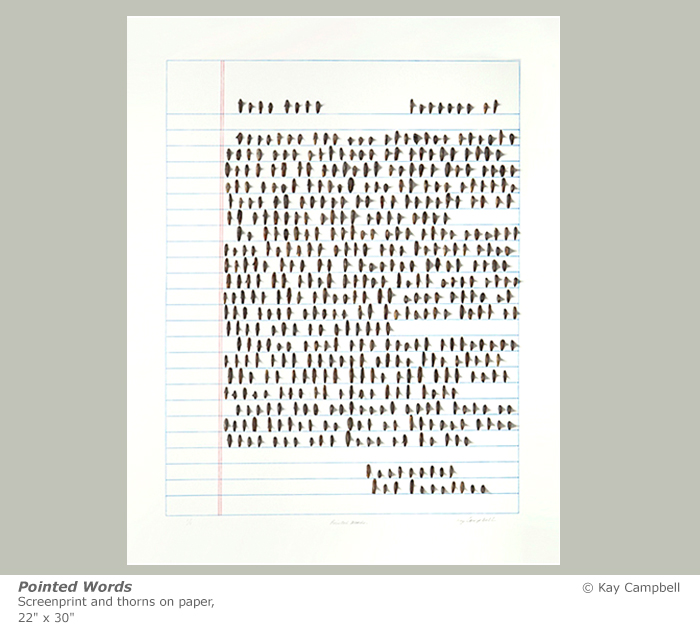 Pointed Words
© Kay Campbell
Screenprint and thorns on paper,
22" x 30"